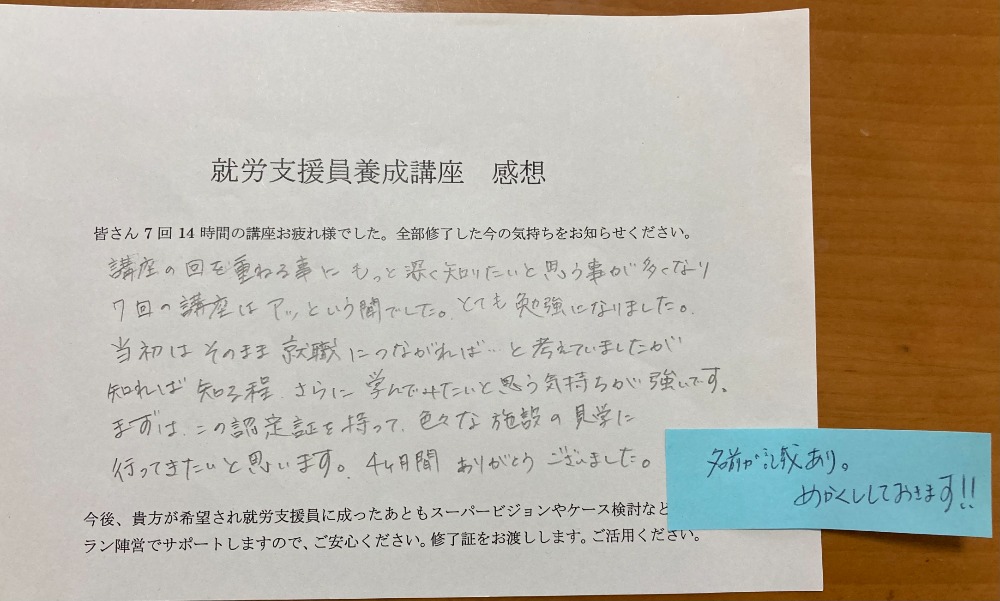 就労支援員養成講座　感想
皆さん7回14時間の講座お疲れ様でした。全部修了した今の気持ちをお知らせください。
講座の回を重ねる事に もっと深く知りたいと思う事が多くなり
7回の講座は アッという間でした。とても勉強になりました。
当初は そのまま 就職につながれば…と考えていましたが
知れば知る程、さらに 学んでみたいと思う気持ちが強いです。
まずは、この認定証を持って、色々な施設の見学に
行ってきたいと思います。4ヶ月間 ありがとう ございました。
名前が記載あり。
めかくししておきます!!
今後、貴方が希望され就労支援員に成ったあともスーパービジョンやケース検討など
ラン陣営でサポートしますので、ご安心ください。修了証をお渡しします。ご活用ください。